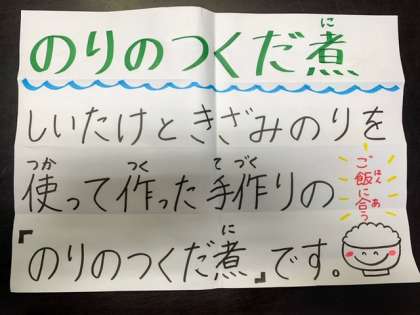 のりのつくだ煮
に
しいたけときざみのりを
つか つく てづく
使って作った手作りの
ご飯に合う
はん あ
に
『のりのつくだ煮』です。